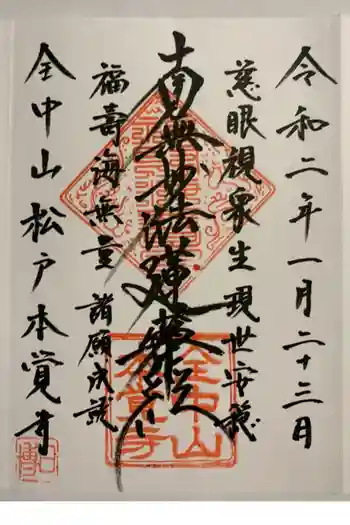 令和二年一月二十三日
慈眼視衆生 現世安穏
南無妙法蓮華経
福壽海無量 諸願成就
金中山松戸本覚寺
金中山
本覚寺